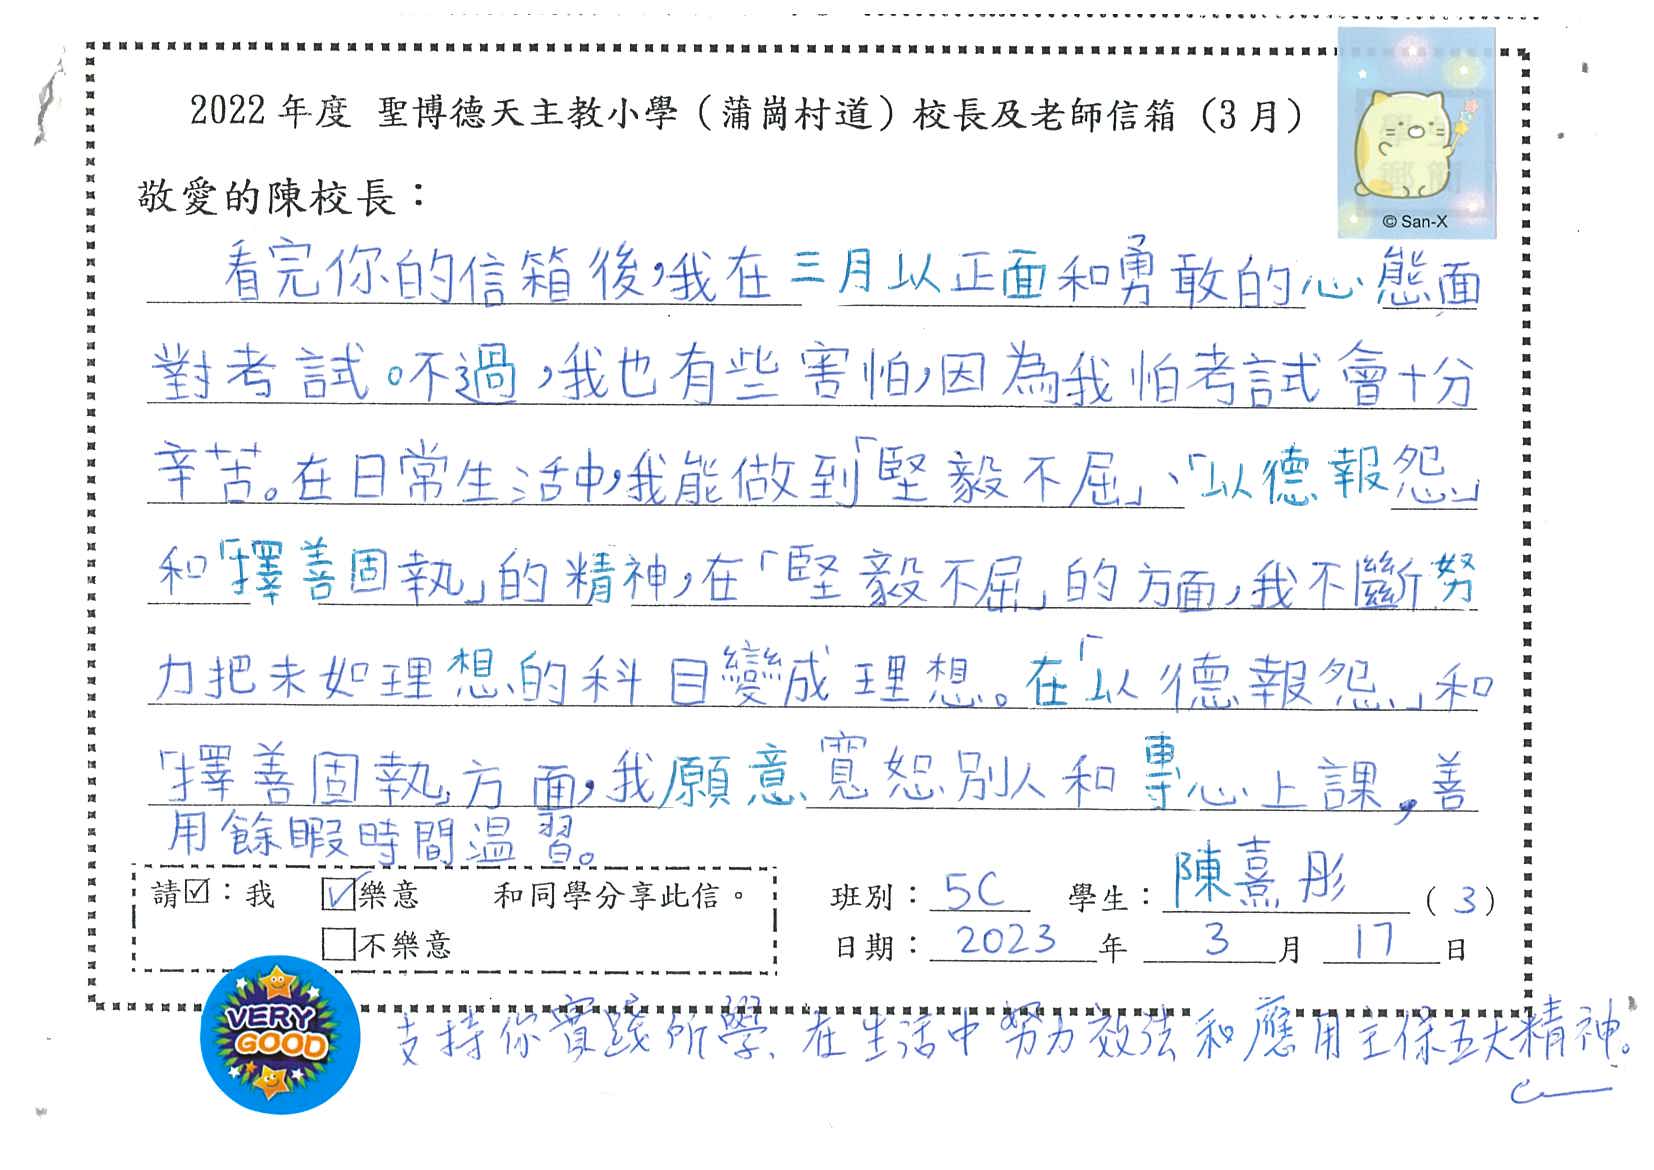 2022 年度 聖博德天主教小學（蒲崗村道）校長及老師信箱（3 月）
© San-X
敬愛的陳校長：
看完你的信箱後，我在三月以正面和勇敢的心態面
對考試。不過，我也有些害怕，因為我怕考試會十分
辛苦。在日常生活中，我能做到「堅毅不屈」、「以德報怨」
和「擇善固執」的精神，在「堅毅不屈」的方面，我不斷努
力把未如理想的科目變成理想。在「以德報怨」和
「擇善固執」方面，我願意寬恕別人和專心上課，善
用餘暇時間温習。
請☑：我 ☑樂意 和同學分享此信。
☐不樂意
班別：5C 學生：陳熹彤（3）
日期：2023 年 3 月 17 日
VERY GOOD
支持你實踐所學、在生活中努力效法和應用主保五大精神。